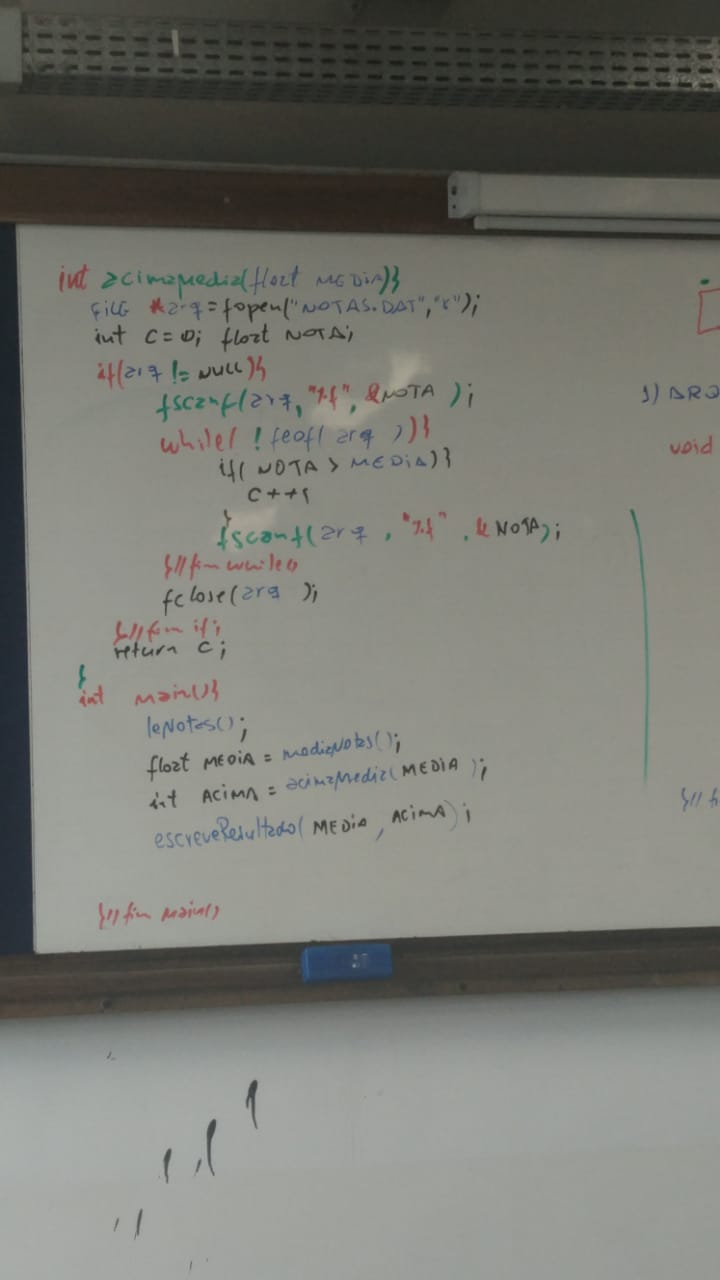 int acimaMedia(float MEDIA){
FILE *arq=fopen("NOTAS.DAT","r");
int c=0; float NOTA;
if(arq != NULL){
fscanf(arq, "%f", &NOTA );
while( !feof( arq )){
if( NOTA > MEDIA){
c++;
}
fscanf(arq, "%f", &NOTA);
}//fim while
fclose(arq );
}//fim if;
return c;
}
int main(){
leNotas();
float MEDIA = mediaNotas();
int ACIMA = acimaMedia( MEDIA );
escreveResultado( MEDIA, ACIMA);
}//fim main()
1) ARQ
void
}//